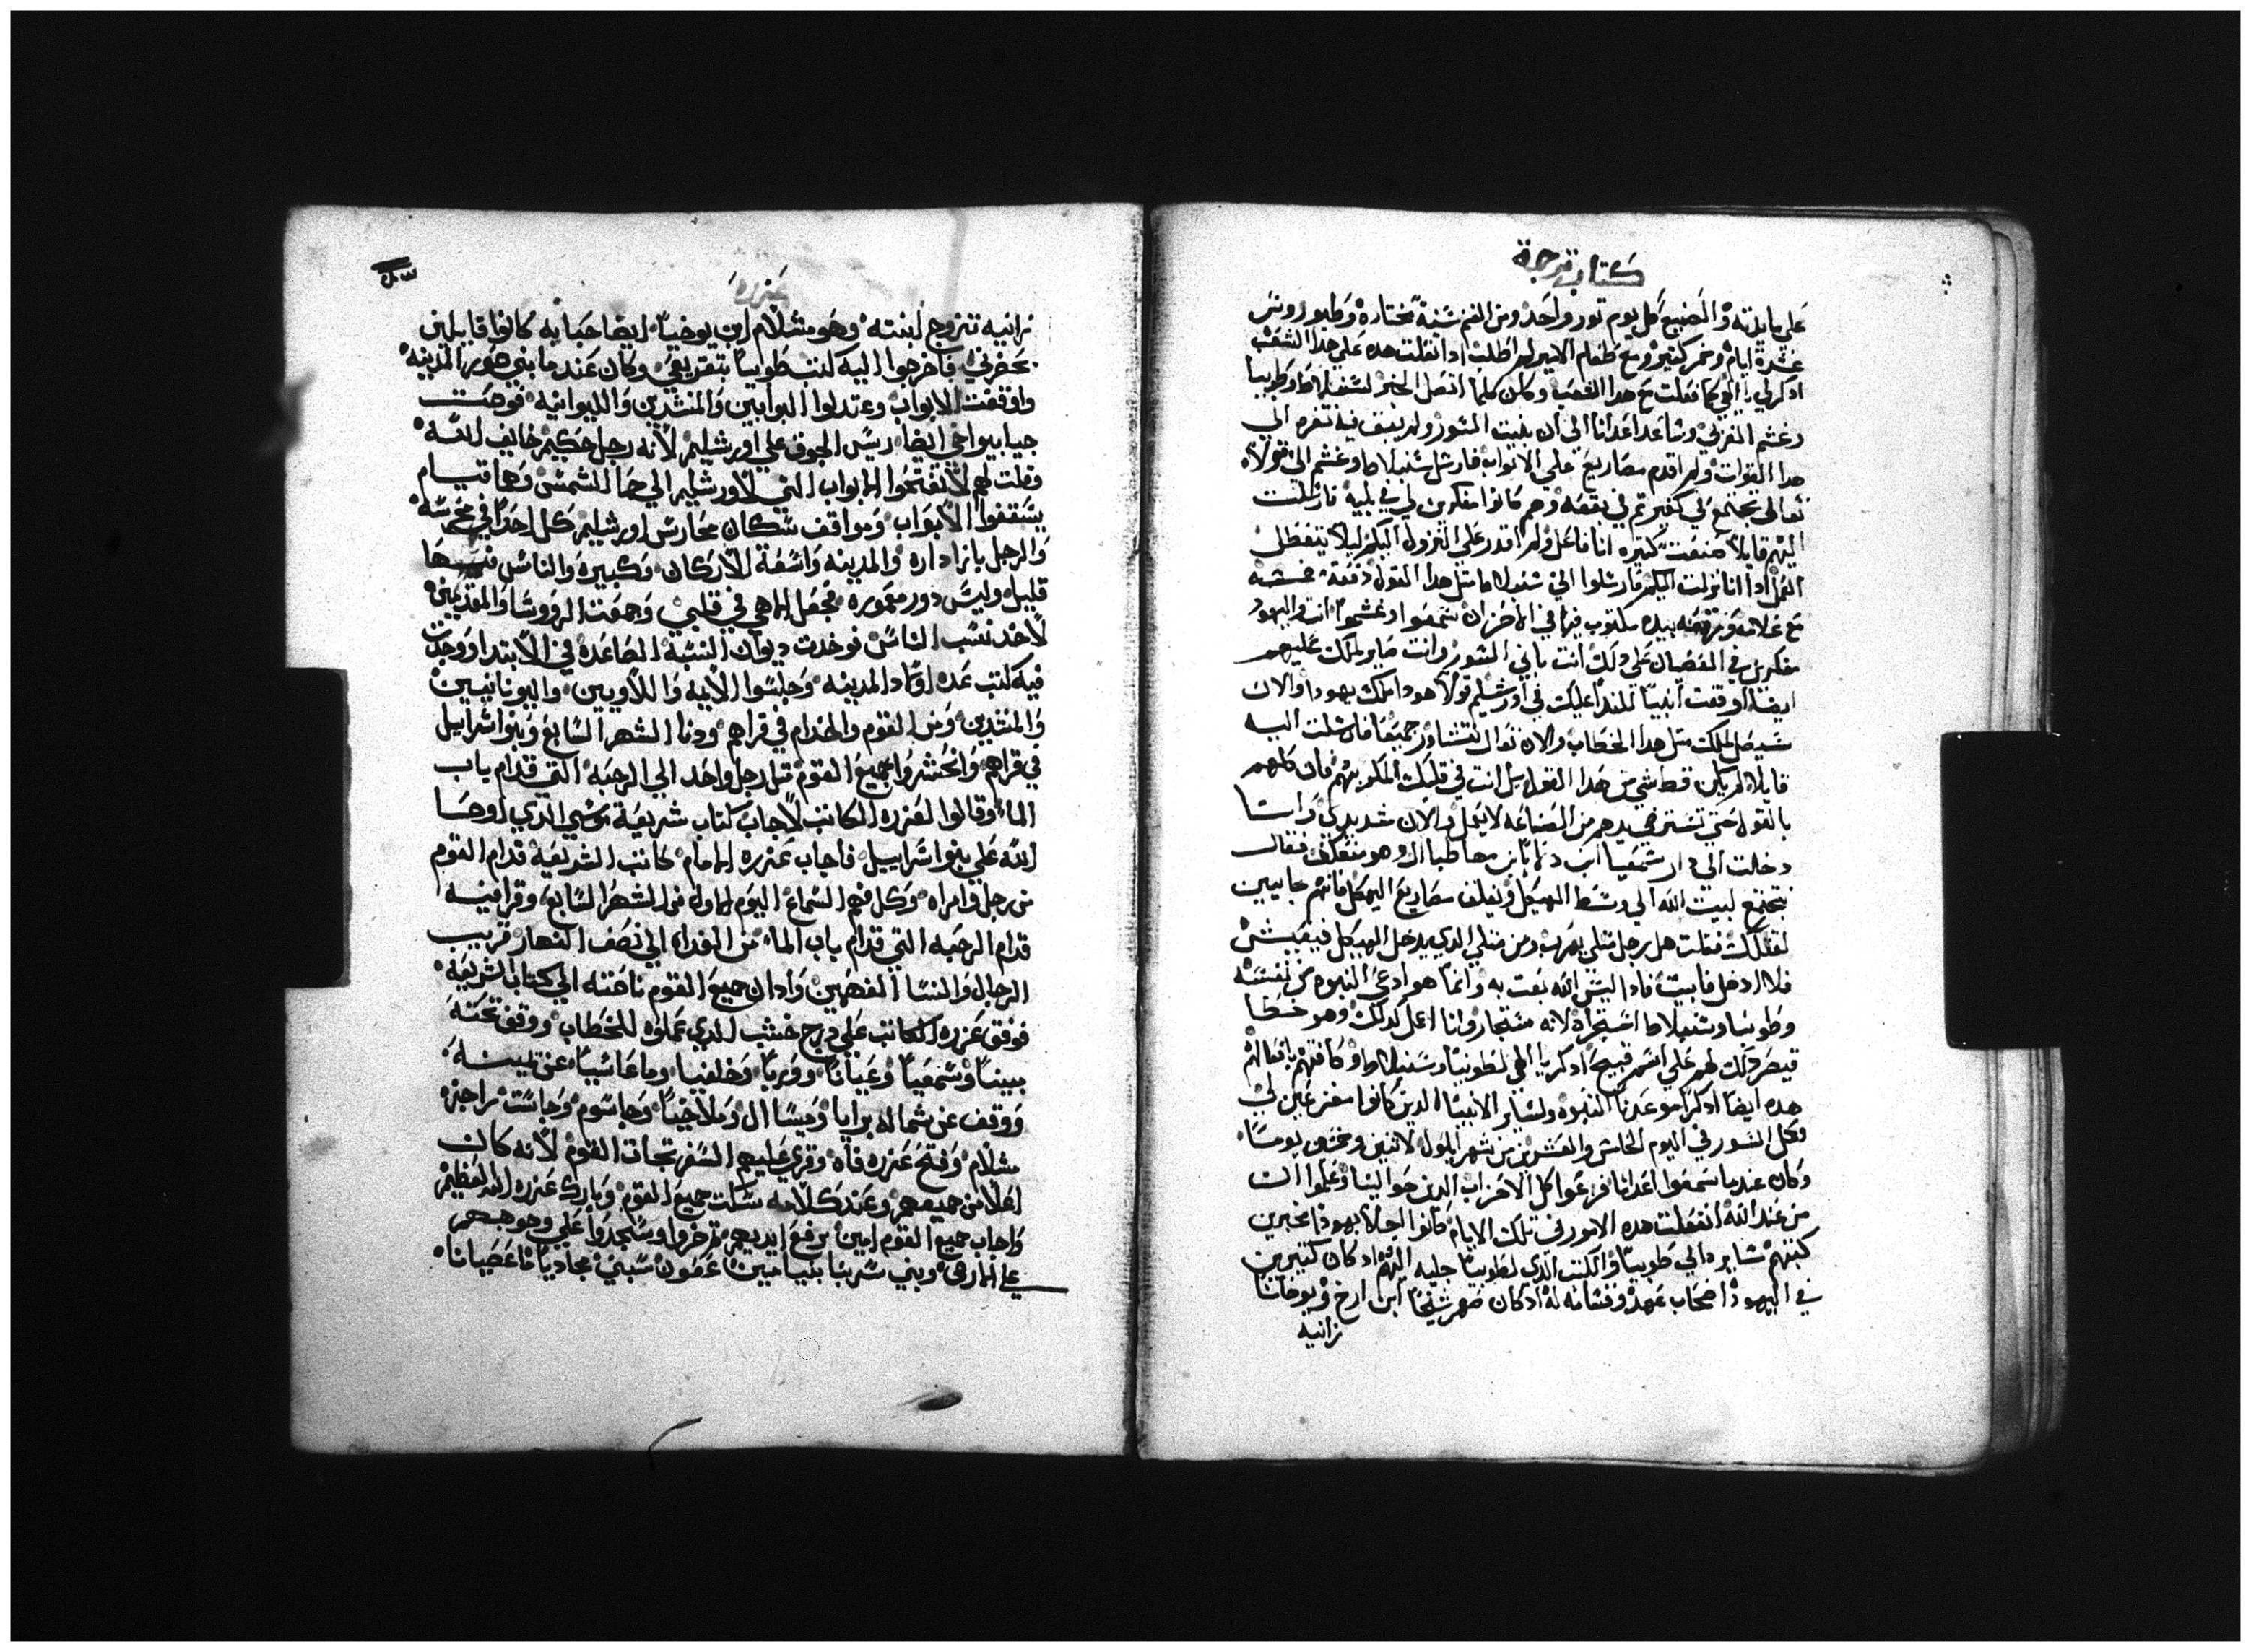 كتاب ترجمة
علي مايدته والصنيع كل يوم تور واحد ومن الغنم ستة مختارة وطيور ومن
عشرة ايام وخمر كتير ومع طعام الامير لم اطلب اد اتقلت هده علي هدا الشعب
ادكرلي يا الهي كما فعلت مع هدا الشعب وكان كلما اتصل الخبر لسنبلاط وطوبيا
وغشم المغربي وساير اعدانا الي ان بنيت السور ولم يبقف فيه تغره الي
هدا الوقت ولم اقدم مصاريع علي الابواب فارسل سنبلاط وغشم الي قولا
تعالي نجتمع في بقعه وهم كانوا مفكرين لي في بليه فارسلت
اليهم قايلا صنعت كتيره انا فاعل ولم اقدر علي النزول اليكم ليلا يتعطل
العمل ادا انا نزلت اليكم فارسلوا الي سنبلاط متل هدا القول دفعة خمسه
مع غلامه ورقعه بيده مكتوب فيها في الاحزاب سمعوا وغشم انت واليهود
مفكرين في العصيان علي دلك انت باني السور وانت صاير لملك عليهم
ايضا اوقفت انبيا للندا عليك في اورشليم قولا هودا ملك يهودا والان
سيصل للملك متل هدا الخطاب والان تعال نتشاور جميعا فارسلت اليه
قايلا لم يكن قط شي من هدا القول بل انت في قلبك المكر بهم فان كلهم
بالقول حتي تسترخي يدهم من الصناعه لا تعمل والان شد يدي وانا
دخلت الي دار شمعيا ابن دلايا ابن مهاطبال وهو متعكف فقال
نجتمع لبيت الله الي وسط الهيكل ونغلف مصاريع الهيكل فانهم جايين
لقتلك فقلت هل رجل متلي يهرب ومن متلي الدي يدخل الهيكل فيعيش
فلا ادخل فابيت فادا ليس الله بعت به وانما هو ادعي النبوه من نفسه
وطوبيا وسنبلاط استجراه لانه مستجار وانا اعل كدلك وهو خطا
فيصر دلك لهم علي اسم قبيح ادكر يا الهي لطوبيا وسنبلاط وكافتهم بافعالهم
هده ايضا ادكر نوعديا النبوه ولساير الانبيا الدين كانوا مفزعين لي
وكل السور في اليوم الخامس والعشرين من شهر ايلول لاتنين وخمسين يوما
وكان عند ما سمعوا اعدانا فزعوا كل الاحزاب الدين حوالينا وعلموا ان
من عند الله انفعلت هده الامور في تلك الايام كانوا اجلا يهودا مخبرين
كتبهم سايره الي طوبيا والكتب الدي لطوبيا جايه اليهم اد كان كتيرين
في اليهود اصحاب عهد وقسامه له اد كان صهر شخنيا ابن ارخ ويوحانان
زانيه
عزره
زانيه تتزوج لبنته وهو مشلام ابن يوخيا ايضا حبايه كانوا قايلين
بحضرتي فاخرجوا اليه كتب طوبيا بتقريعي وكان عند ما بني سور المدينه
واوقفت الابواب وعتدلوا البوابين والمنشدين والليوانيه فوصت
حيا بيواخي ايضا ريس الجوق علي اورشليم لانه رجل حكيم خايف الله
وقلت لهم لا تفتحوا الابواب التي لاورشليم الي حما الشمس وها قيام
يسقفوا الابواب ومواقف سكان محارس اورشليم كل احد في محرسه
والرجل بازا داره والمدينه واسعة الاركان وكبيره والناس فيها
قليل وليس دور معموره فجعل الاهي في قلبي وجمعت الروسا والمقدمين
لاخد نسب الناس فوجدت ديوان النسبه الصاعده في الابتدا ووجدت
فيه كتب عده اولاد المدينه وجلسوا الايمه واللاويين والبوابين
والمنشدين ومن القوم والخدام في قراهم ودنا الشهر السابع وبنو اسراييل
في قراهم وانحشروا جميع القوم متل رجل واحد الي الرحبه التي قدام باب
الماء وقالوا لعزره الكاتب لاجاب كتاب شريعة موسي الدي اوحا
الله علي بنو اسراييل فاجاب عزره الامام كاتب الشريعه قدام القوم
من رجل وامراه وكل فهم السماع اليوم الاول من الشهر السابع وقرا فيه
قدام الرحبه التي قدام باب الماء من الغداه الي نصف النهار قريب
الرجال والنسا الفهمين وادان جميع القوم ناصته الي كتاب الشريعه
فوقف عزره الكاتب علي درج خشب الدي عملوه للخطاب ووقف تحته
بيننا وشمعيا وعيانا ووريا وخلقيا وماعاسيا عن يمينه
ووقف عن شماله برايا وميسا ال وملاخيا وحاسوم وجاست راجزه
مشلام وفتح عزره فاه وقري عليهم السفر تجاه القوم لانه كان
اعلا من جميعهم وعند كلامه سكت جميع القوم وبارك عزره الله العظيم
واجاب جميع القوم امين برفع ايديهم تم خروا وسجدوا علي وجوههم
علي الارض وبني سربنا بنيامين عقون سبتي مجاديا ما عصيانا